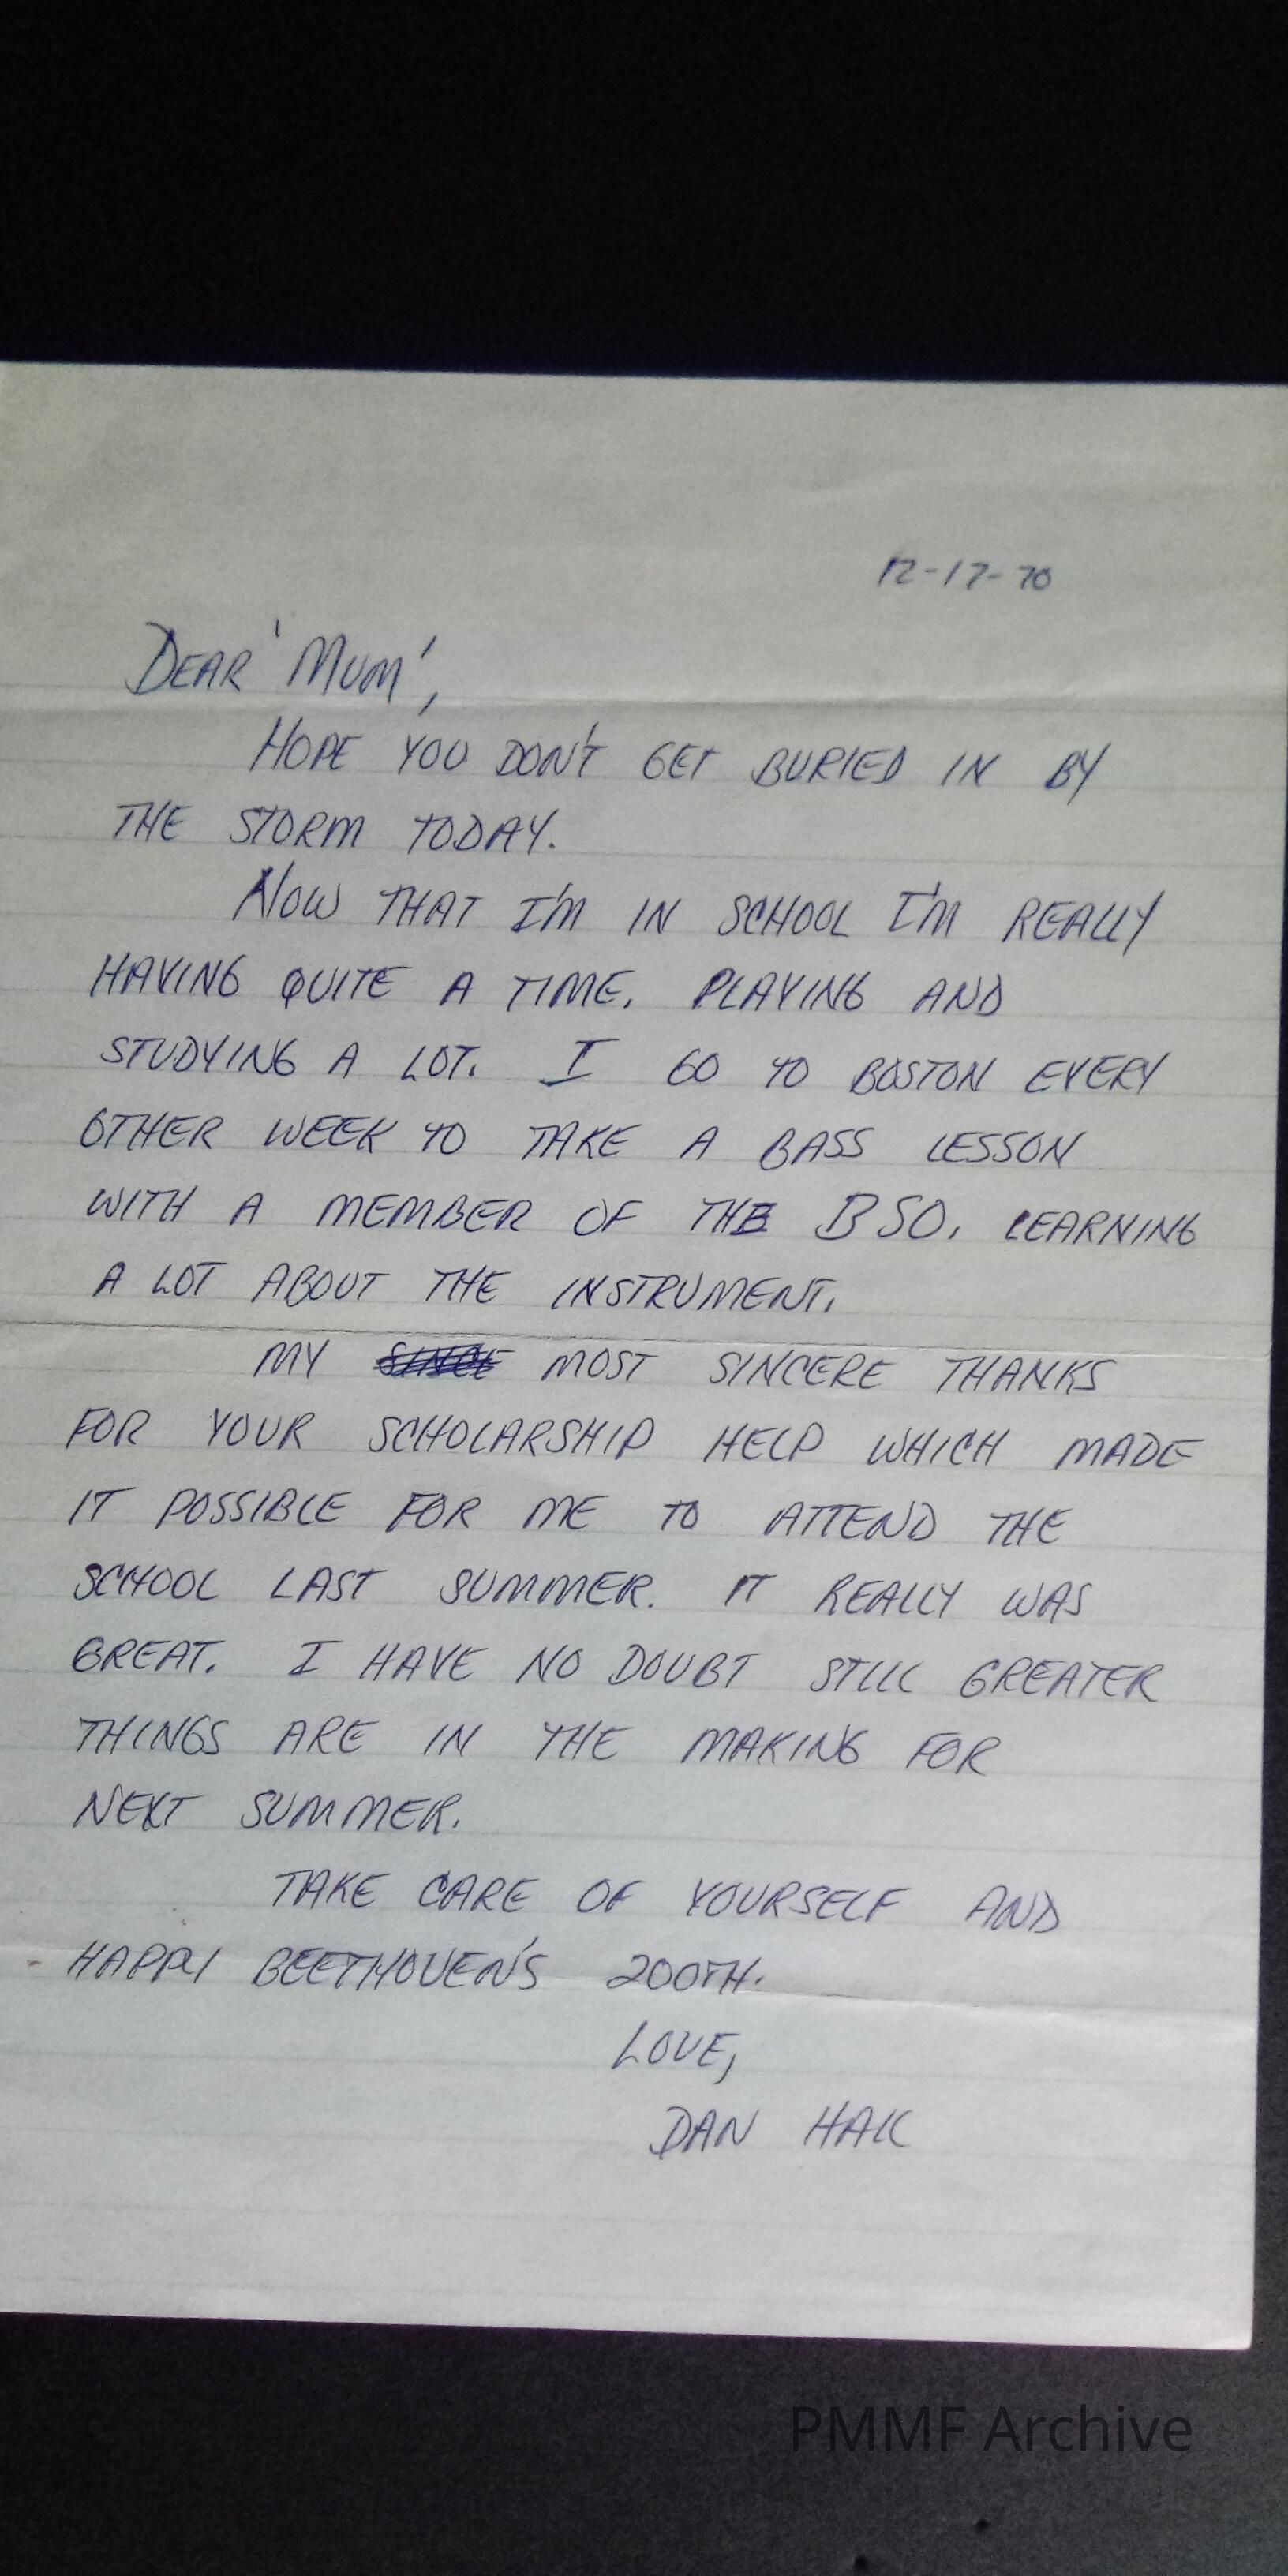 12-17-70
DEAR 'MUM',
HOPE YOU DON'T GET BURIED IN BY
THE STORM TODAY.
NOW THAT I'M IN SCHOOL I'M REALLY
HAVING QUITE A TIME. PLAYING AND
STUDYING A LOT. I GO TO BOSTON EVERY
OTHER WEEK TO TAKE A BASS LESSON
WITH A MEMBER OF THE BSO. LEARNING
A LOT ABOUT THE INSTRUMENT.
MY SINCE MOST SINCERE THANKS
FOR YOUR SCHOLARSHIP HELP WHICH MADE
IT POSSIBLE FOR ME TO ATTEND THE
SCHOOL LAST SUMMER. IT REALLY WAS
GREAT. I HAVE NO DOUBT STILL GREATER
THINGS ARE IN THE MAKING FOR
NEXT SUMMER.
TAKE CARE OF YOURSELF AND
HAPPY BEETHOVEN'S 200TH.
LOVE,
DAN HALL
PMMF Archive